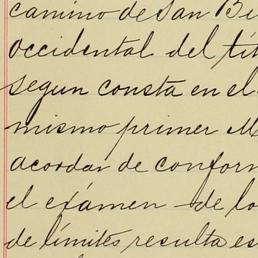 camino de San Be
occidental del tít
segun consta en el
mismo primer M
acordar de confor
el exámen de lo
de límites resulta es